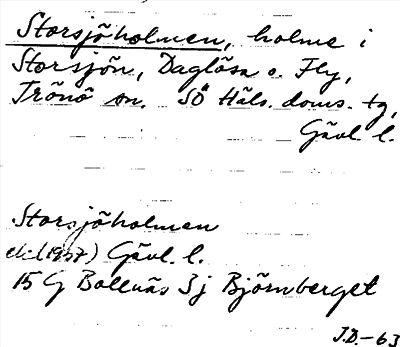 Storsjöholmen, holme i
Storsjön, Daglösa o. Fly,
Trönö sn. SÖ Häls. doms. tg,
Gävl. l.
Storsjöholmen
ekbl (1957) Gävl. l.
15 G Bollnäs 3j Björnberget
J.D.-63